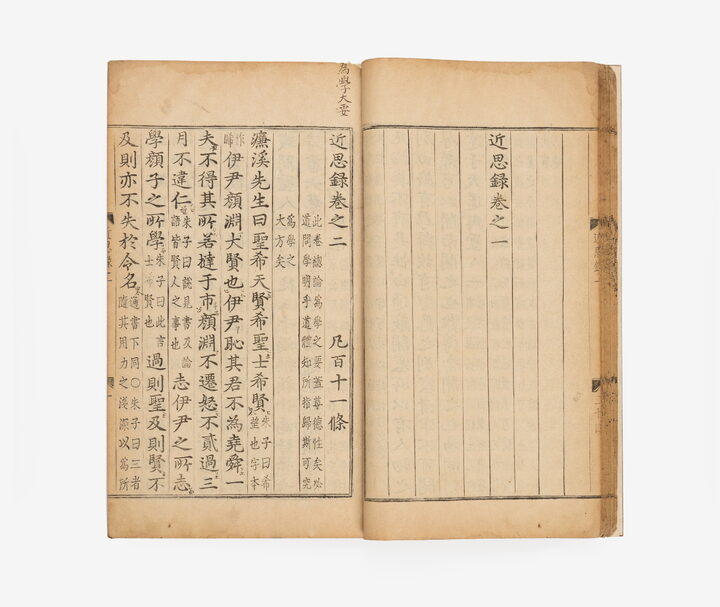 近思録卷之一
為學大要
近思録卷之二 凡百十一條
此卷總論為學之要蓋尊德性矣必
道問學明乎道體知所指歸斯可究
為學之
大方矣
濂溪先生曰聖希天賢希聖士希賢朱子曰希望也字本
作睎伊尹顏淵大賢也伊尹恥其君不為堯舜一
夫不得其所若撻于市顏淵不遷怒不貳過三
月不違仁朱子曰說見書及論語皆賢人之事也志伊尹之所志
學顏子之所學朱子曰此言士希賢也過則聖及則賢不
及則亦不失於令名通書下同○朱子曰三者隨其用力之淺深以為所